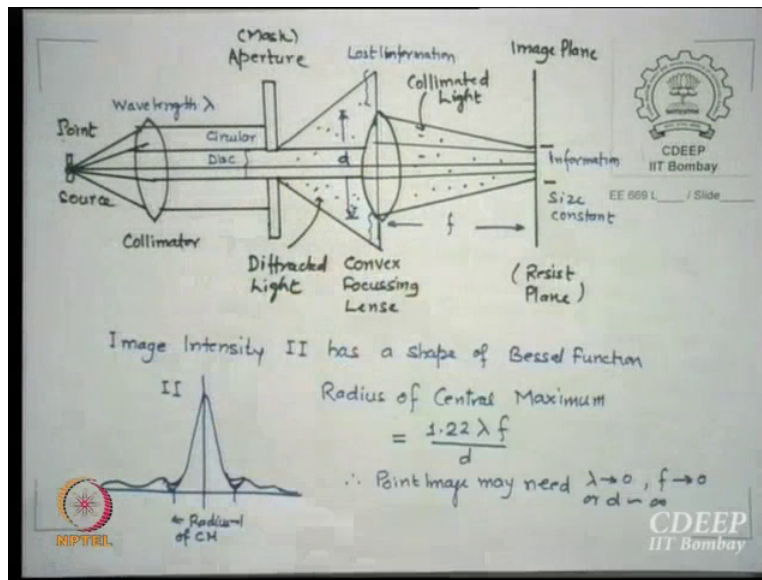 (Mask)
Aperture
Lost Information
Image Plane
Collimated
Light
Wavelength λ
Point
Source
Circular
Disc
d
Information
Size
constant
f
Collimator
Diffracted
Light
Convex
Focussing
Lense
(Resist
Plane)
CDEEP
IIT Bombay
EE 669 L____ / Slide____
Image Intensity II has a shape of Bessel Function
II
Radius of Central Maximum
= 1.22 λ f / d
∴ Point Image may need λ→0, f→0
or d ~ ∞
← Radius→
of CM
NPTEL
CDEEP
IIT Bombay